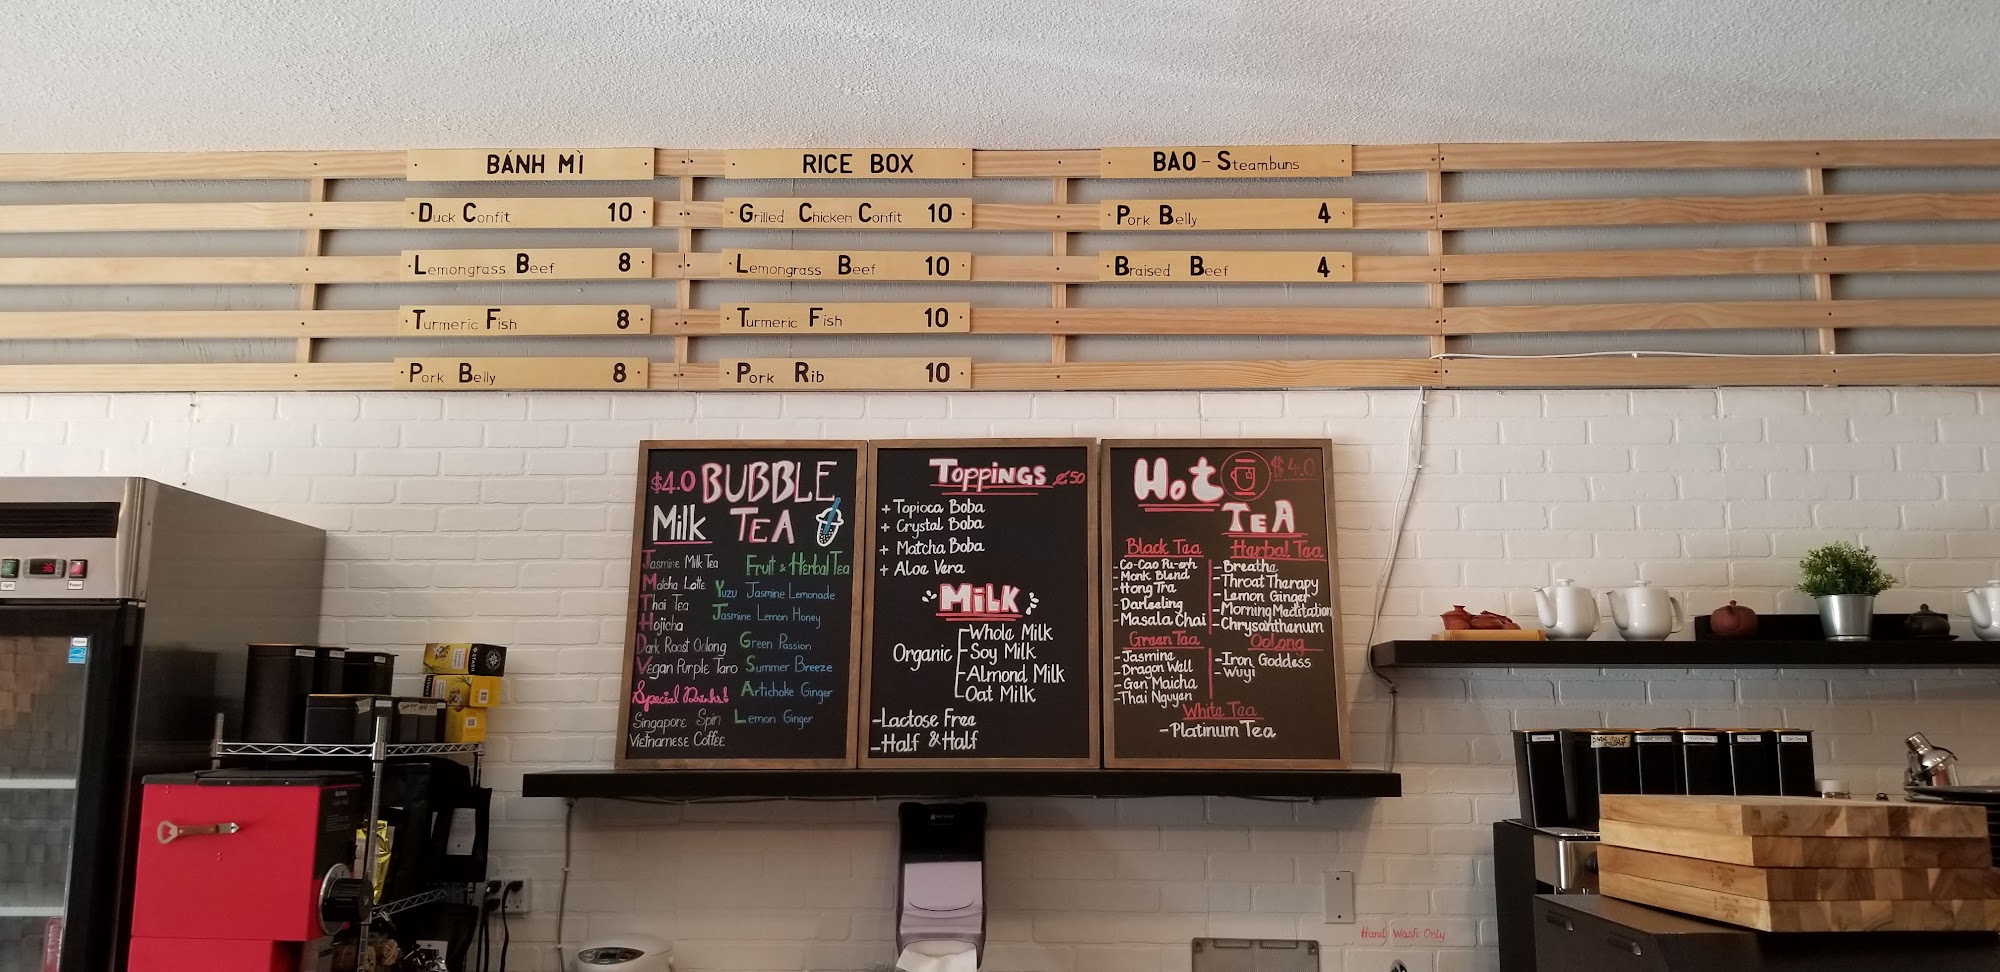 BÁNH MÌ
Duck Confit 10
Lemongrass Beef 8
Turmeric Fish 8
Pork Belly 8
RICE BOX
Grilled Chicken Confit 10
Lemongrass Beef 10
Turmeric Fish 10
Pork Rib 10
BAO - Steambuns
Pork Belly 4
Braised Beef 4
$4.0 BUBBLE
Milk TEA
Jasmine Milk Tea
Matcha Latte
Thai Tea
Hojicha
Dark Roast Oolong
Vegan Purple Taro
Special Drinks
Singapore Spin
Vietnamese Coffee
Fruit & Herbal Tea
Yuzu Jasmine Lemonade
Jasmine Lemon Honey
Green Passion
Summer Breeze
Artichoke Ginger
Lemon Ginger
Toppings ¢50
+ Tapioca Boba
+ Crystal Boba
+ Matcha Boba
+ Aloe Vera
Milk
Organic
-Whole Milk
-Soy Milk
-Almond Milk
-Oat Milk
-Lactose Free
-Half & Half
Hot $4.0
TEA
Black Tea
-Co-Cao Pu-erh
-Monk Blend
-Hong Tra
-Darleeling
-Masala Chai
Green Tea
-Jasmine
-Dragon Wall
-Gen Maicha
-Thai Nguyen
Herbal Tea
-Breathe
-Throat Therapy
-Lemon Ginger
-Morning Meditation
-Chrysanthenum
Oolong
-Iron Goddess
-Wuyi
White Tea
-Platinum Tea
Hand Wash Only